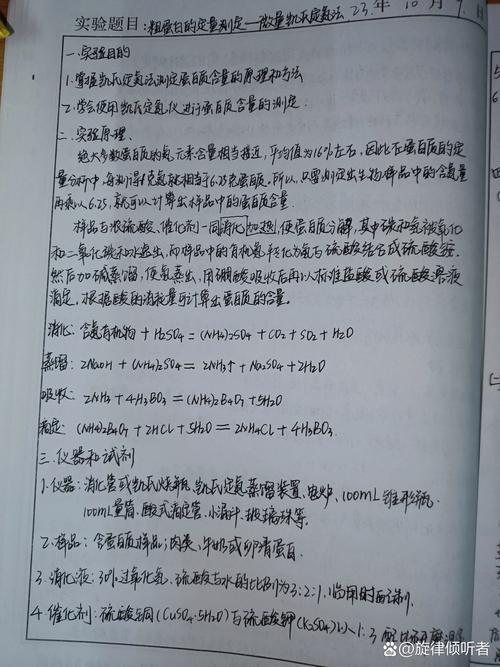 实验题目：粗蛋白的定量测定—微量凯氏定氮法 23.年 10 月 9.日
一.实验目的
1.掌握凯氏定氮法测定蛋白质含量的原理和方法
2.学会使用凯氏定氮仪进行蛋白质含量的测定.
二.实验原理.
绝大多数蛋白质的氮元素含量相当接近，平均值为16%左右，因此在蛋白质的定
量分析中，每测得1克氮就相当于6.25克蛋白质。所以，只要测定出生物样品中的含氮量
再乘以6.25，就可以计算出样品中的蛋白质含量.
样品与浓硫酸、催化剂一同消化加热，使蛋白质分解，其中碳和氢被氧化
和二氧化碳和水逸出，而样品中的有机氮转化为氨与硫酸结合成硫酸铵.
然后加碱蒸馏，使氨蒸出，用硼酸吸收后再以标准盐酸或硫酸溶液
滴定，根据酸的消耗量可计算出蛋白质的含量。
消化：含氮有机物 + H2SO4 = (NH4)2SO4 + CO2 + SO2 + H2O
蒸馏：2NaOH + (NH4)2SO4 = 2NH3↑ + Na2SO4 + 2H2O
吸收：2NH3 + 4H3BO3 = (NH4)2B4O7 + 5H2O
滴定：(NH4)2B4O7 + 2HCl + 5H2O = 2NH4Cl + 4H3BO3.
三.仪器和试剂
1.仪器：消化管或凯氏烧瓶、凯氏定氮蒸馏装置、电炉、100mL锥形瓶、
100mL量筒、酸式滴定管、小漏斗、玻璃珠等。
2.样品：含蛋白质样品；肉类、牛奶或卵清蛋白.
3.消化液：30%过氧化氢、硫酸与水的比例为3:2:1，临用时配制.
4.催化剂：硫酸铜(CuSO4·5H2O)与硫酸钾(K2SO4)以1:3配比
@旋律倾听者